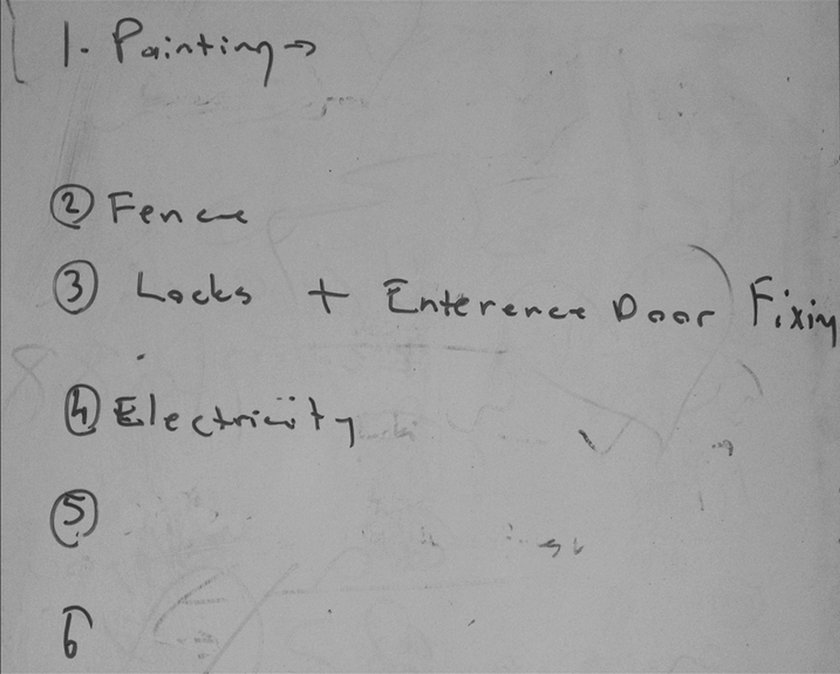 1. Painting →
② Fence
③ Locks + Enterence Door Fixing
④ Electricity
⑤
6